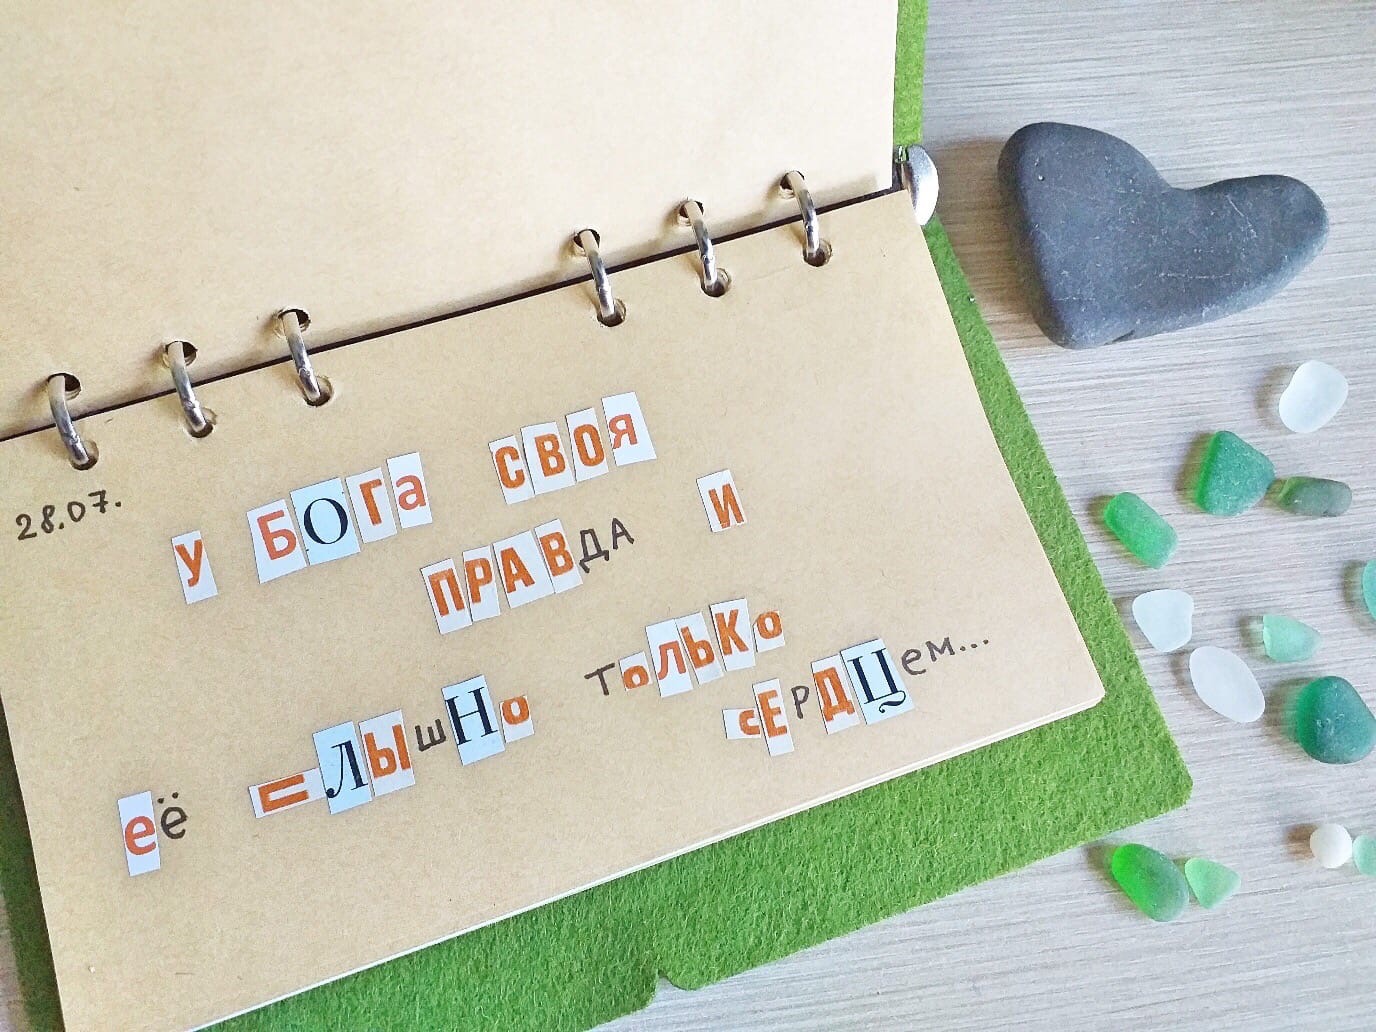 28.07.
У БОГа СВОЯ
ПРАВДА И
её сЛЫшНо ТоЛЬКо
сЕРДЦем...